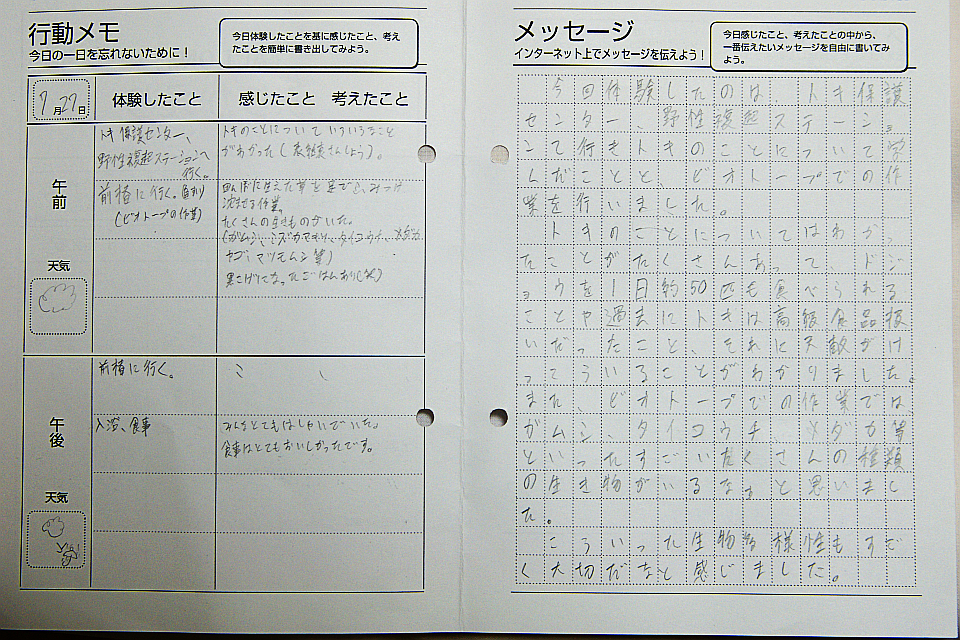 行動メモ
今日の一日を忘れないために!
今日体験したことを基に感じたこと、考え
たことを簡単に書き出してみよう。
7月27日
体験したこと
感じたこと 考えたこと
午前
天気
トキ保護センター、
野性復起ステーションへ
行く。
トキのことについていろいろなこと
があった(
前椿に行く。
(ビオトープの作業)
田んぼに生えた草を足でふみつけ
沈ませる作業。
たくさんの生きものがいた。
午後
天気
前椿に行く。
入浴、食事
みんなとてもはしゃいでいた。
食事はとてもおいしかったです。
メッセージ
インターネット上でメッセージを伝えよう!
今日感じたこと、考えたことの中から、
一番伝えたいメッセージを自由に書いてみ
よう。
今回体験したのは、トキ保護
センター、野性復起ステーショ
ンて行きトキのことについて学
んだことと、ビオトープでの作
業を行いました。
トキのことについてはわかっ
たことがたくさんあって、ドジ
ョウを1日約50匹も食べられる
ことや過去にトキは高級食品扱
いだったこと、それに天敵がけ
っこういることがわかりました。
また、ビオトープでの作業では
ガムシ、タイコウチ、メダカ等
といったすごいたくさんの種類
の生き物がいるなぁと思いまし
た。
こういった生物多様性もすご
く大切だなと感じました。